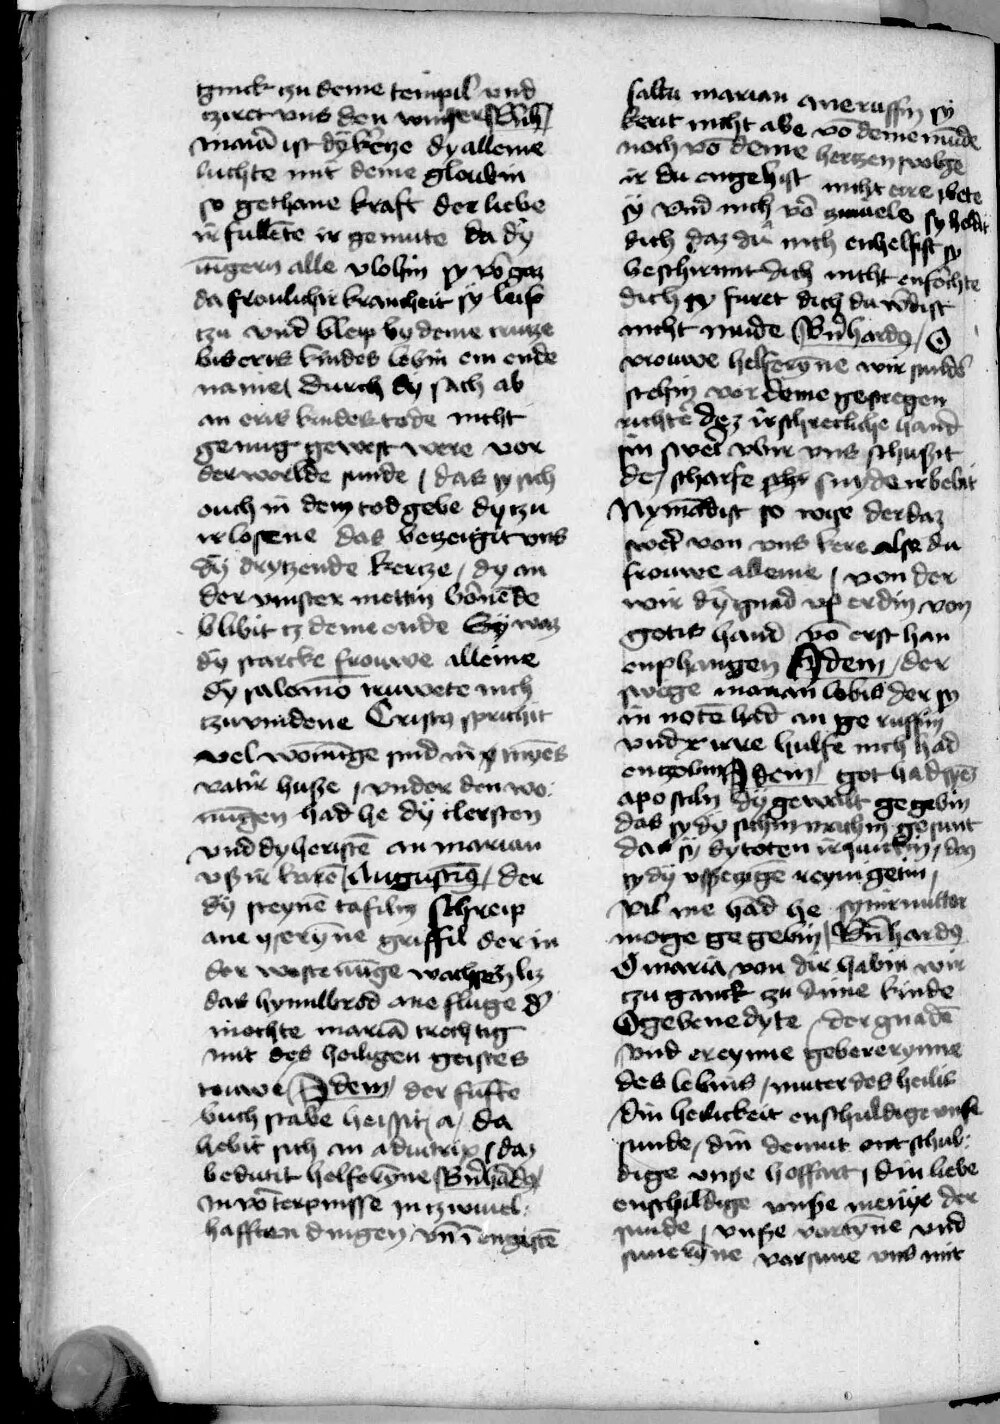 ginck czu deme tempil und
cziret uns den winger Bn̄h
maiā ist dÿ kercze dy alleine
luchte mit deme gloubin
so gethane kraft der liebe
irfullēte ir gemute da dÿ
iūgern alle vlohin sy vō gaz
da froulichir krancheit sy leip
czu und bleip by deme crucze
bis eris kindes lebin ein ende
name durch dy sach ab
an eris kindes tode nicht
genug gewest were vor
der worlde sunde / das sy sich
ouch in dem tod gebe dy czu
irlosene das beczeigit uns
dÿ dryczende kercze / dy an
der vinster mettin bornēde
blibit cz deme ende Sy waz
dÿ starcke frouwe alleine
dy salomō truwete nich
czu vindene Cristꝯ sprichit
vel wonūge sind in mynēs
vatir husze / under den wo:
nūgen had he dÿ clersten
und dy heristē an marian
usz ir korē Augustinꝯ / der
dÿ steynē tafiln schreip
ane yserȳne griffil der in
der wostenūge wachszin liz
das hymilbrod ane fluge d'
mochte mariā trechtig
mit des heiligen geistes
touwe Idem der funfte
buchstabe heissit / a / da
hebit sich an adiutrix / daz
bedutit helferȳne Bn̄hādꝯ
in vōterpnisse in czwiuel:
hafften dingen vn̄ ī engistē
saltu marian aneruffin sy
kerit nicht abe vō deme mūde
noch vō deme herczen volge
ir du engehist nicht erre bete
sy und nich vō zwiuele sy heldit
dich daz du nich enhelfist sy
beschirmit dich nicht enforchte
dich sy furet dich du wirdist
nicht mude Bn̄hardꝯ / O
vrouwe helferȳne wir sulde
stehin vor deme gestregen
richter dez irschrecliche hand
sin swert wir uns schuszit
de / scharfe snyde irbebit
Nymādist so wise der daz
swert von uns kere alse du
frouwe alleine / von der
wir dÿ gnad uf erdin von
gotis hand vō erst han
enphangen Idem / der
swige marian lobis der sy
in notē had an geruffin
und ir irre hulfe nich had
enczobin Idem / got had synē
apostiln dÿ gewalt gegebin
das sy dy sichin machin gesunt
das sy dy toten irquickin / daz
sy dÿ uszseczigē reynigetin /
vil me had he synir mutter
moge gegebin / Bn̄hardꝯ
O maria von dir habin wir
czu ganck zu dime kinde
O gebenedyte / der gnadē
und ereynne gebererynne
des lebins / muter des heilis
din heilickeit enschuldige unse
sunde / din demut entschul:
dige unse hoffart / din liebe
enschuldige unse menige der
sunde / unsze vorsyne und
sunerȳne vorsune uns mit